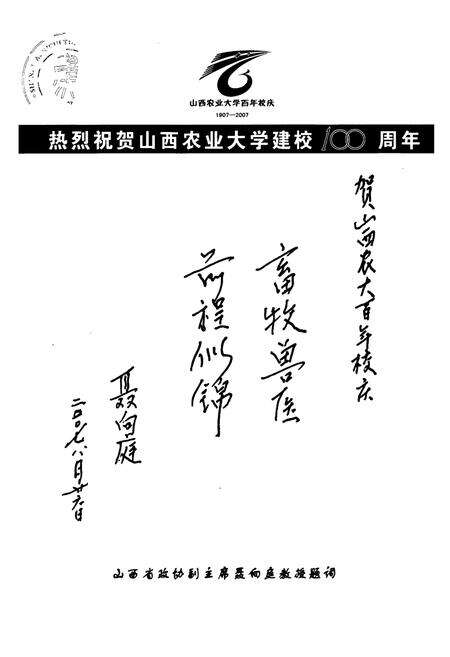 山西农业大学百年校庆
1907—2007
热烈祝贺山西农业大学建校100周年
贺山西农大百年校庆
畜牧兽医
前程似锦
聂向庭
二〇〇七八月廿六日
山西省政协副主席聂向庭教授题词